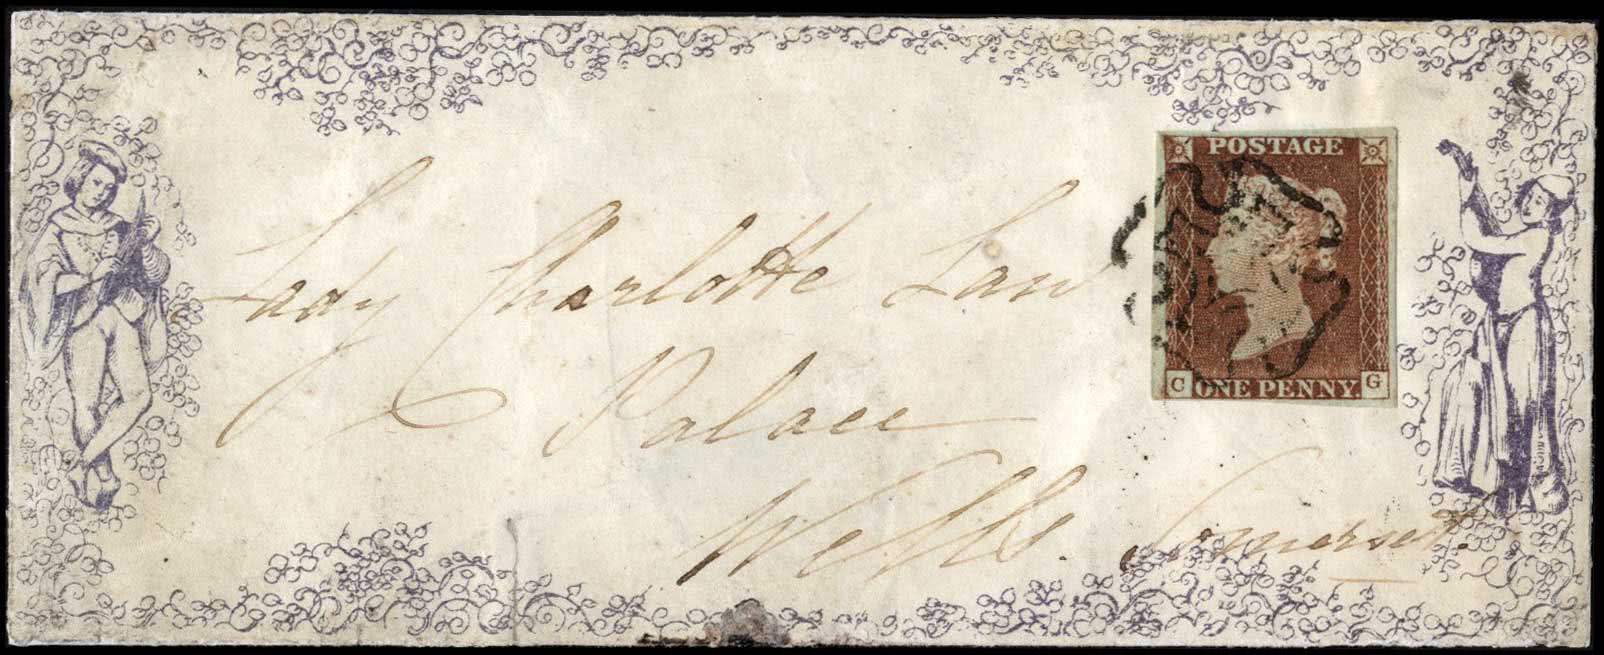 POSTAGE
C ONE PENNY. G
Lady Charlotte Law
Palace
Wells. Somerset.